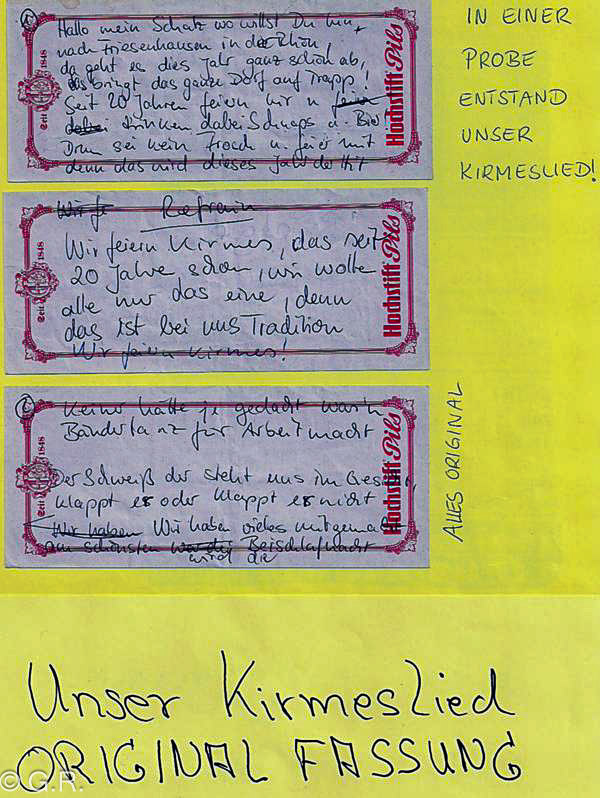 Hallo mein Schatz wo willst Du hin,
nach Friesenhausen in der Rhön,
da geht es dies Jahr ganz schön ab,
es bringt das ganze Dorf auf Trapp!
Seit 20 Jahren feiern wir u feiern
dabei trinken dabei Schnaps u. Bier
Drum sei kein Frosch u. feier mit
denn das wird dieses Jahr der Hit
Seit 1848
Hochstift Pils
IN EINER
PROBE
ENTSTAND
UNSER
KIRMESLIED!
Wir fe Refrain
Wir feiern Kirmes, das seit
20 Jahre schon, wir wolle
alle nur das eine, denn
das ist bei uns Tradition
Wir feiern Kirmes!
Seit 1848
Hochstift Pils
Keiner hätte je gedacht was'n
Bändertanz für Arbeit macht
Der Schweiß der steht uns im Gesicht,
klappt es oder klappt es nicht
Wir haben Wir haben vieles mitgemacht
am schönsten war die Beischlafnacht
wird die
Seit 1848
Hochstift Pils
ALLES ORIGINAL
Unser Kirmeslied
ORIGINAL FASSUNG
© G.R.